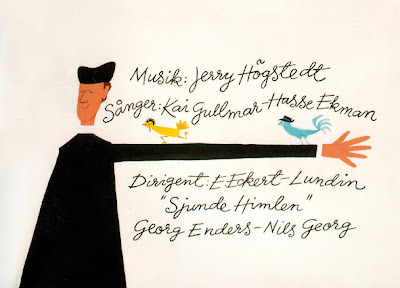 Musik: Jerry Högstedt
Sånger: Kai Gullmar-Hasse Ekman
Dirigent: E Eckert-Lundin
"Sjunde Himlen"
Georg Enders-Nils Georg